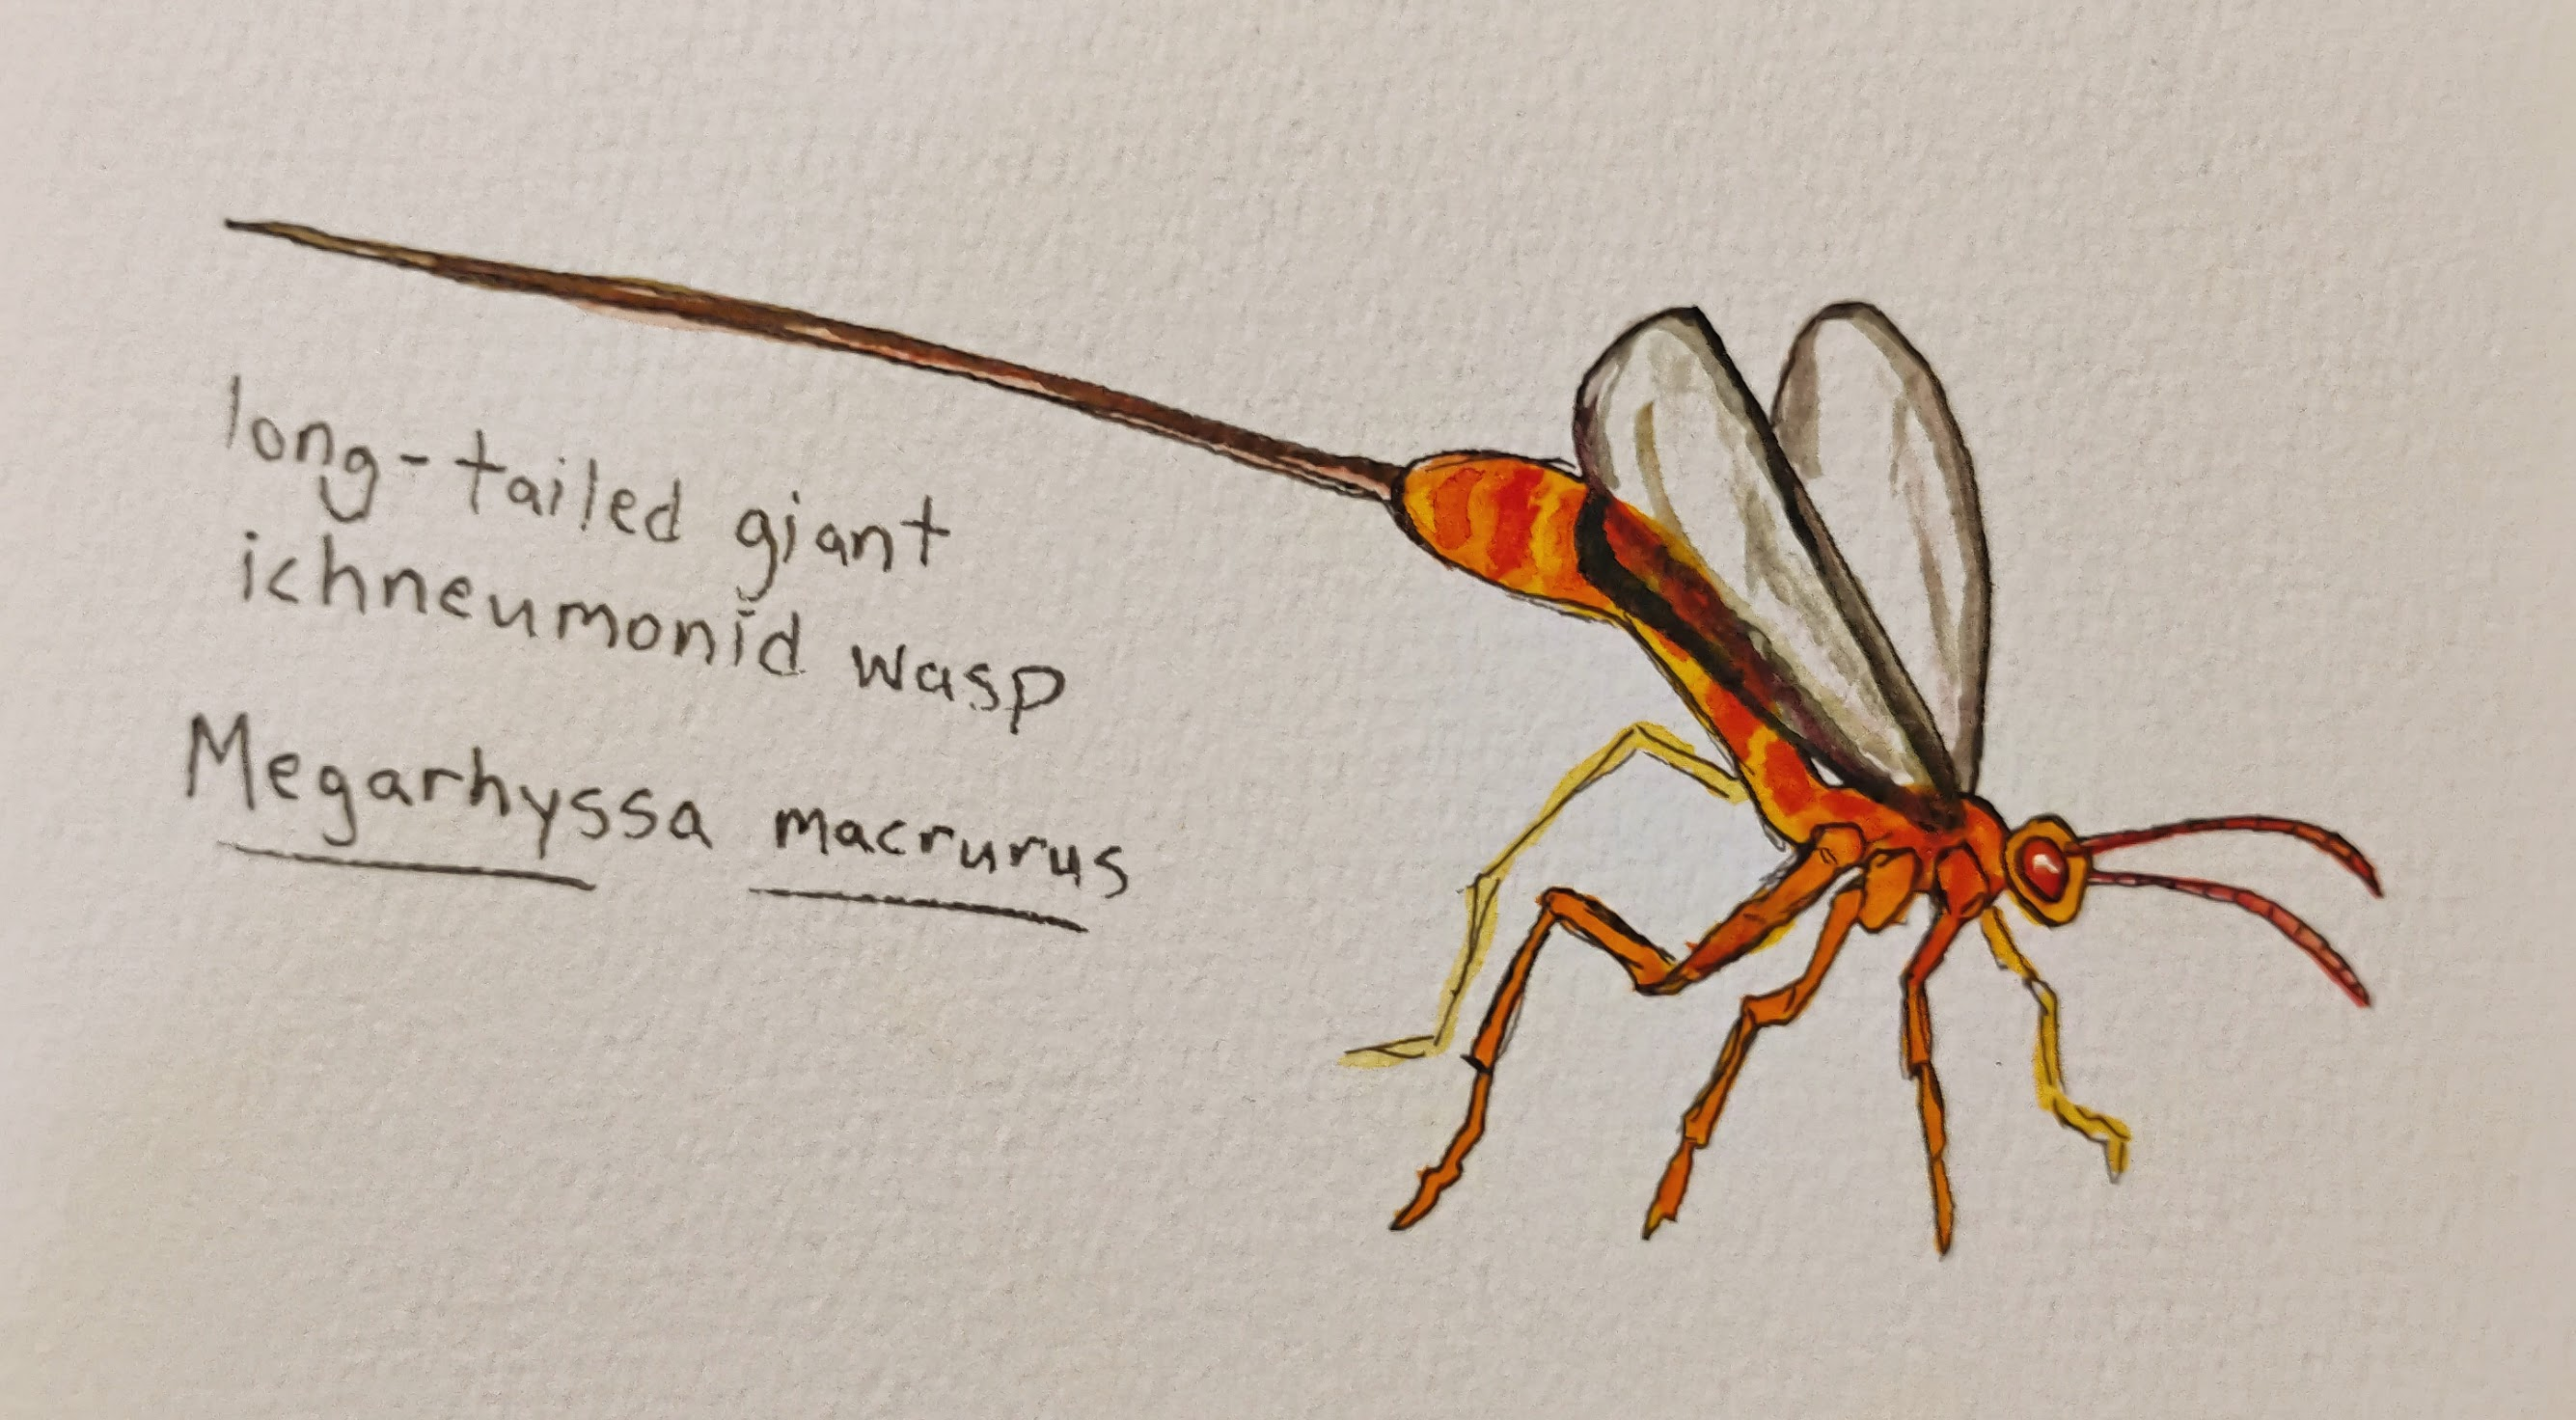 long-tailed giant
ichneumonid wasp
Megarhyssa macrurus